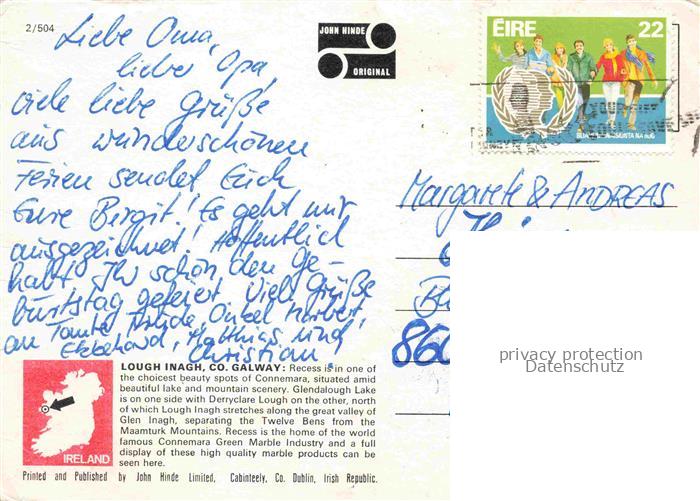 2/504
JOHN HINDE
ORIGINAL
ÉIRE 22
Liebe Oma,
lieber Opa,
viele liebe Grüße
aus wunderschönen
Ferien sendet Euch
Eure Birgit! Es geht mir
ausgezeichnet! Hoffentlich
habt Ihr schön den Ge-
burtstag gefeiert. Viele Grüße
an Tante Onkel Norbert,
Ekkehard, Matthias und
Christian!
Margarete & ANDREAS
860
privacy protection
Datenschutz
LOUGH INAGH, CO. GALWAY: Recess is in one of
the choicest beauty spots of Connemara, situated amid
beautiful lake and mountain scenery. Glendalough Lake
is on one side with Derryclare Lough on the other, north
of which Lough Inagh stretches along the great valley of
Glen Inagh, separating the Twelve Bens from the
Maamturk Mountains. Recess is the home of the world
famous Connemara Green Marble Industry and a full
display of these high quality marble products can be
seen here.
IRELAND
Printed and Published by John Hinde Limited, Cabinteely, Co. Dublin, Irish Republic.